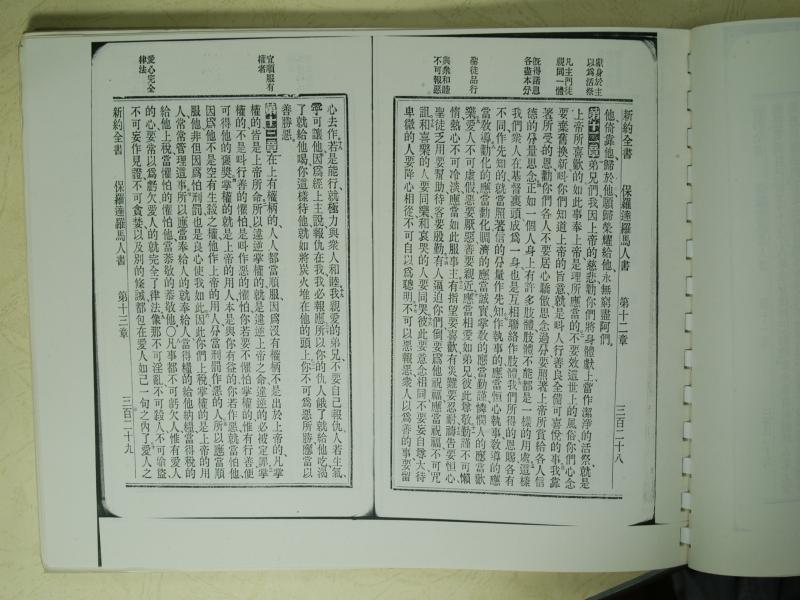 獻身於主
以爲活祭
凡主門徒
視同一體
旣得諸恩
各盡本分
聖徒品行
與衆和睦
不可報惡
新約全書　保羅達羅馬人書　第十二章　三百二十八
他倚靠他歸於他願歸榮耀給他永無窮盡阿們
第十二章弟兄們我因上帝的慈悲勸你們將身體獻上當作潔淨的活祭就是
上帝所喜歡的如此事奉上帝是理所應當的不要效這世上的風俗你們心念
要棄舊換新叫你們知道上帝的旨意就是叫人行善良全備可喜悅的事我靠
著所受的恩勸你們各人不要居心驕傲思念過分要照著上帝所賞給各人信
德的分量思念正如一個人身上有許多肢體肢體不能都是一樣的用處這樣
我們衆人在基督裏頭成爲一身也是互相聯絡作肢體我們所得的恩賜各有
不同作先知的就當照著信的分量作先知作執事的應當恒心執事敎導的應
當敎導勸化的應當勸化賙濟的應當誠實掌敎的應當勤謹憐憫人的應當歡
樂愛人不可虛假惡要厭惡善要親近應當相愛如弟兄彼此尊敬勤謹不可懶
惰熱心不可冷淡應當如此服事主有指望要喜歡有災難要忍耐禱告要恒心
聖徒乏用要幫助待客要殷勤有人逼迫你們倒要爲他祝福應當祝福不可咒
詛和喜樂的人要同樂和哀哭的人要同哭彼此要意念相同不要妄自尊大待
卑微的人要降心相從不可自以爲聰明不可以惡報惡衆人以爲善的事要留
宜順服有
權者
愛心完全
律法
心去作若是能行就極力與衆人和睦我親愛的弟兄不要自己報仇人若生氣
寧可讓他因爲經上主說報仇在我我必報應所以你的仇人餓了就給他吃渴
了就給他喝你這樣待他就如將炭火堆在他的頭上你不可爲惡所勝應當以
善勝惡
第十三章在上有權柄的人人都當順服因爲沒有權柄不是出於上帝的凡掌
權的皆是上帝所命所以違逆掌權的就是違逆上帝之命違逆的必被定罪掌
權的不是叫行善的懼怕是叫作惡的懼怕你若要不懼怕掌權的惟有行善便
可得他的褒獎掌權的就是上帝的用人本是與你有益的你若作惡就當怕他
因爲他不是空有生殺之權他作上帝的用人分當刑罰作惡的人所以應當順
服他非但因爲怕刑罰也是良心使我如此因此你們上稅掌權的是上帝的用
人常常管理這事所以應當奉給人的就奉給人當得糧的給他納糧當得稅的
給他上稅當懼怕的懼怕他當恭敬的恭敬他〇凡事都不可虧欠人惟有愛人
的心要常以爲虧欠愛人的就完全了律法像那不可淫亂不可殺人不可偸盜
不可妄作見證不可貪婪以及別的條誡都包在愛人如己一句之內了愛人之
新約全書　保羅達羅馬人書　第十三章　三百二十九